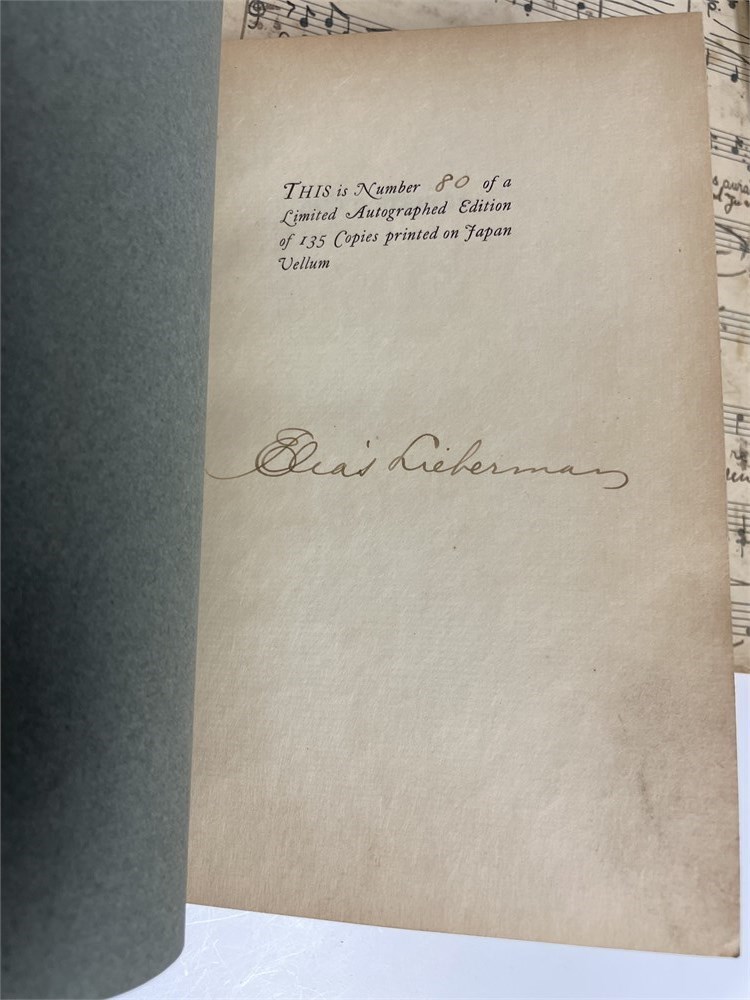 THIS is Number 80 of a
Limited Autographed Edition
of 135 Copies printed on Japan
Vellum
Elias Lieberman